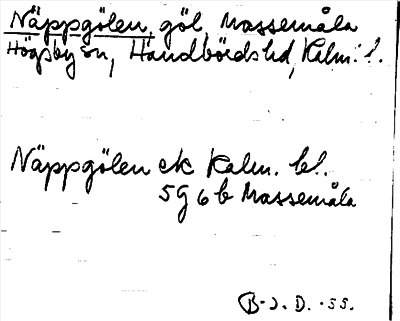 Näppgölen, göl, Massemåla
Högsby sn, Handbörds hd, Kalm. l.
Näppgölen ek Kalm. bl.
5G 6b Massemåla
B-J. D. -55.